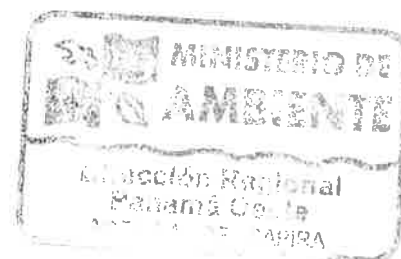 MINISTERIO DE
AMBIENTE
Dirección Regional
Panamá Oeste
CAPIRA